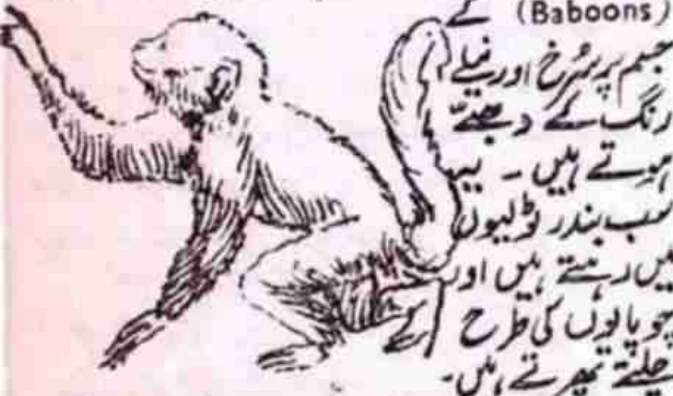 (Baboons) کے
جسم پر سُرخ اور نیلے
رنگ کے دھبّے
ہوتے ہیں ۔ یہ
سب بندر ٹولیوں
میں رہتے ہیں اور
چوپایوں کی طرح
چلتے پھرتے ہیں۔